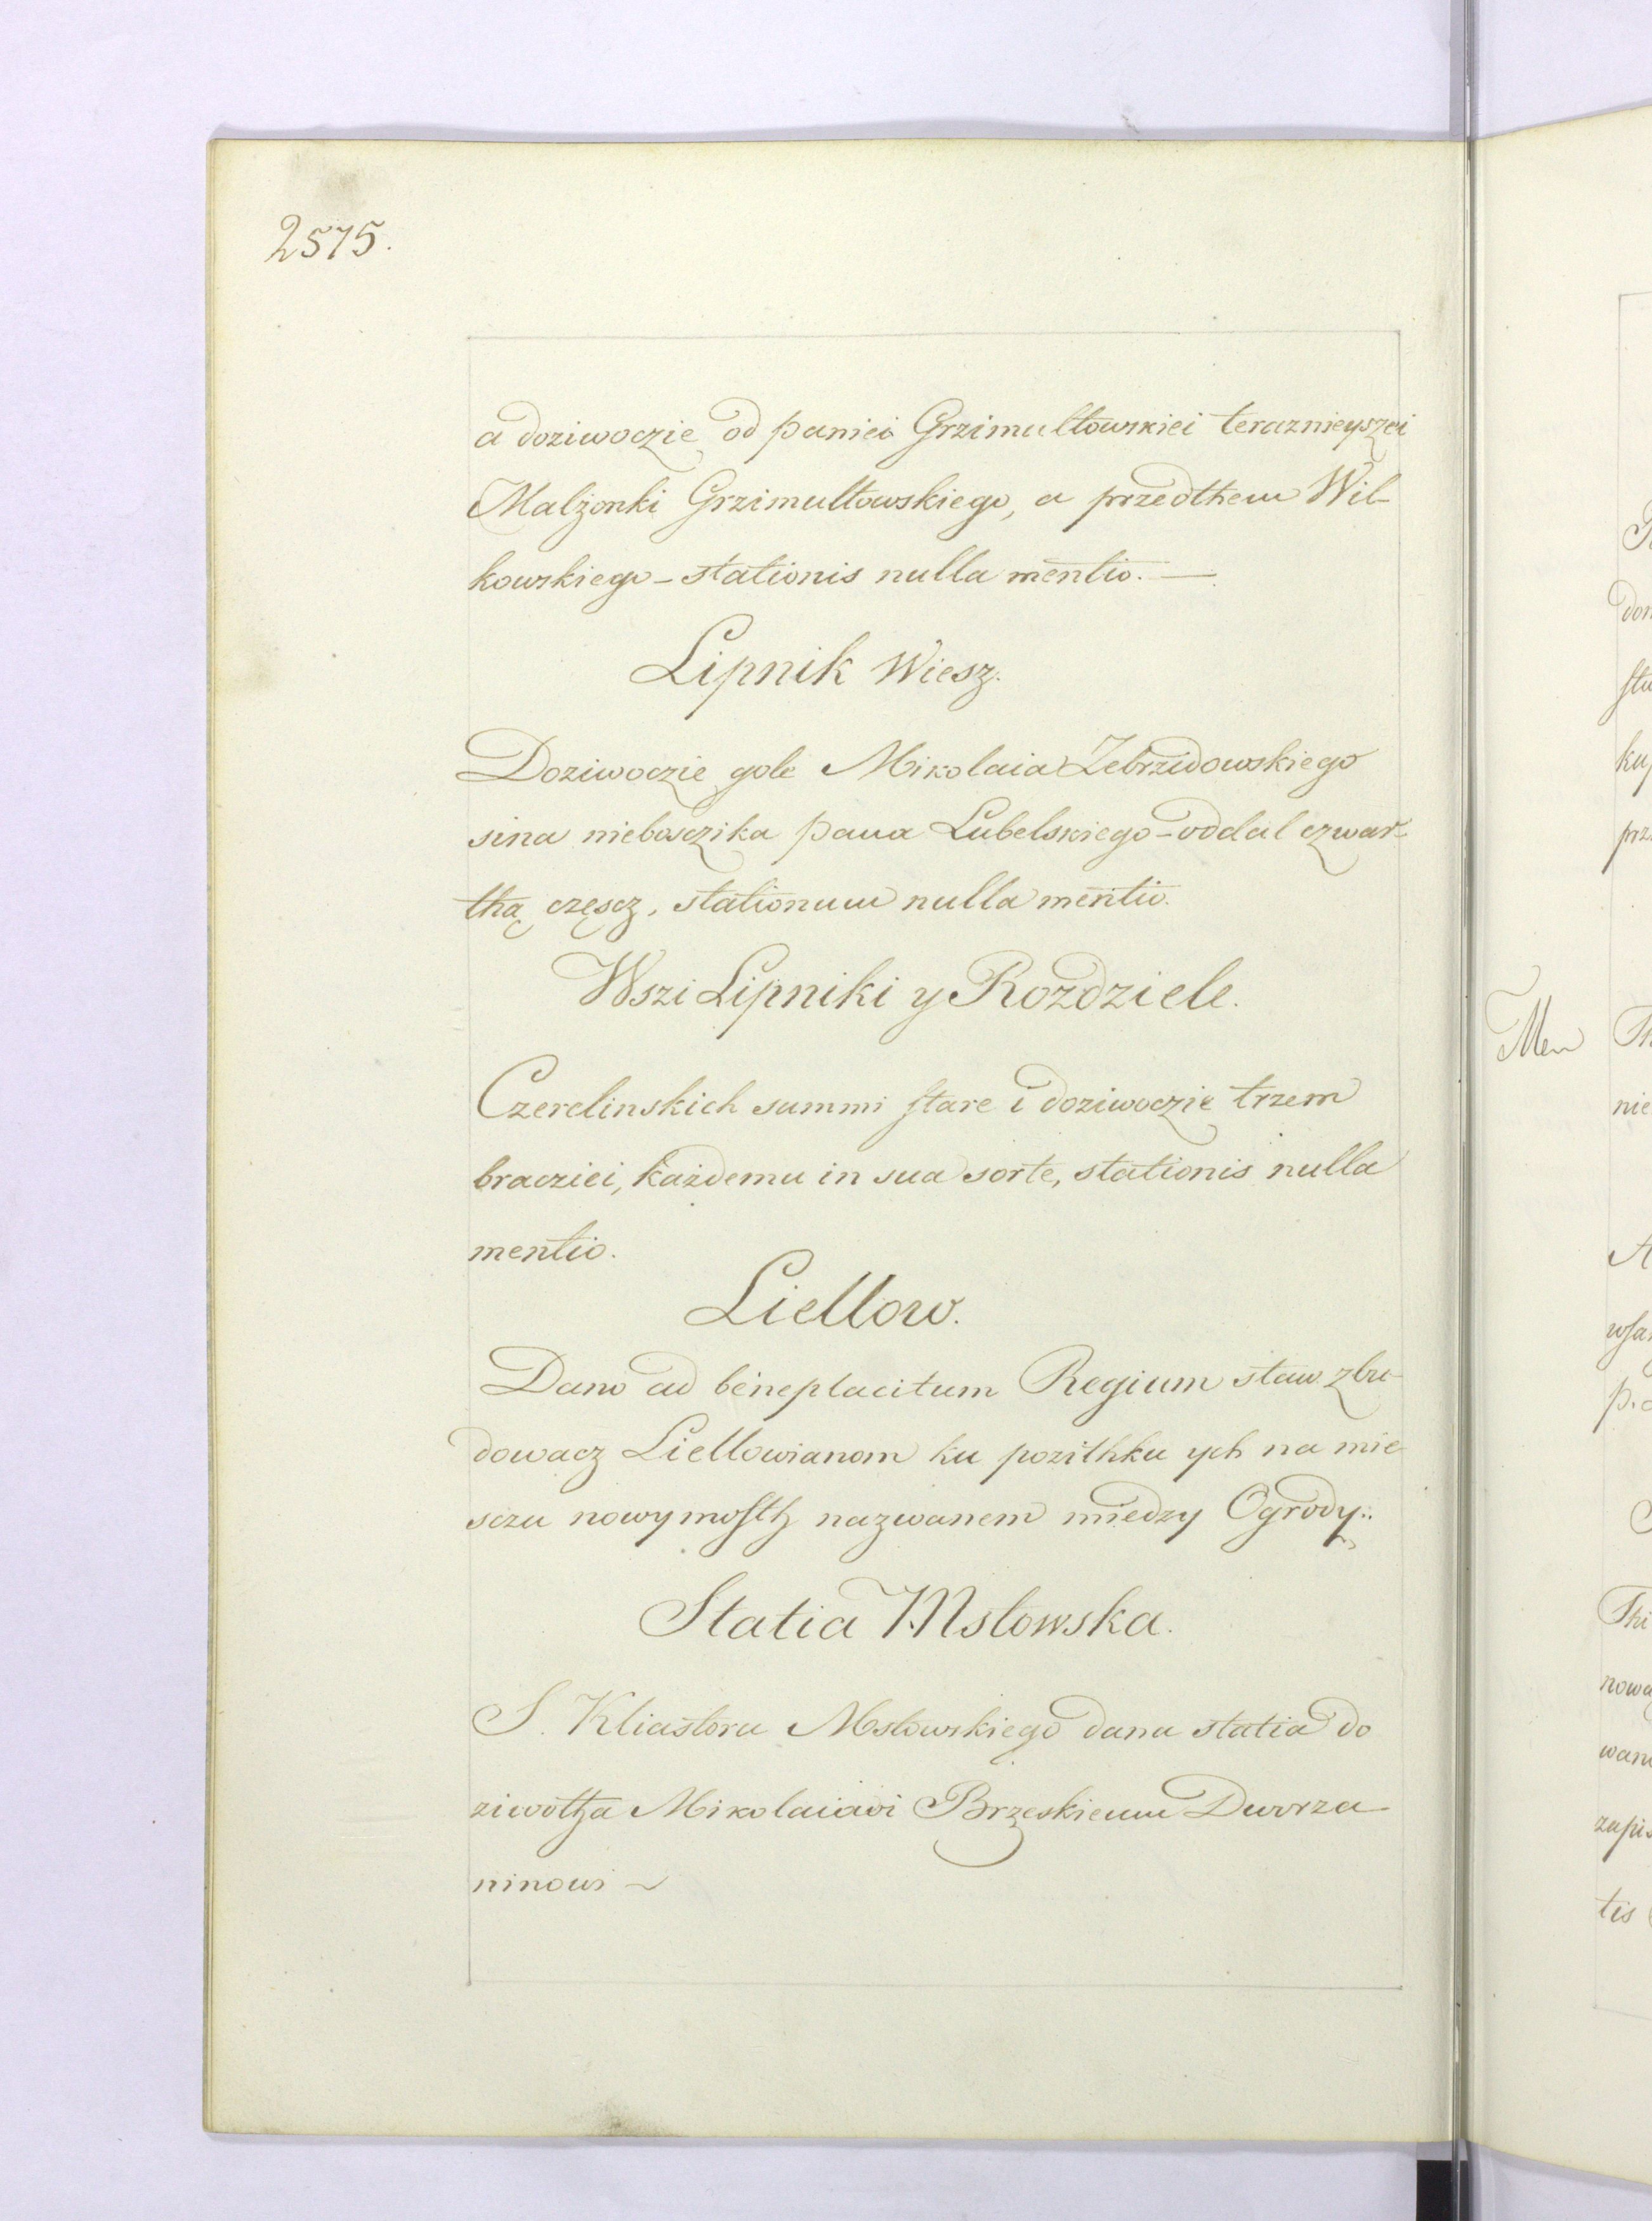 2575.
a doziwoczie od paniei Grzimultowskiei teraznieyszei
Malżonki Grzimultowskiego, a przedthem Wil-
kowskiego - stationis nulla mentio. —
Lipnik Wiesz.
Doziwoczie gole Mikolaia Zebrzidowskiego
sina nieboszczika pana Lubelskiego - oddal czwar-
thą częscz, stationum nulla mentio.
Wszi Lipniki y Rozdziele.
Czerelinskich summi stare i doziwoczie trzem
bracziei, każdemu in sua sorte, stationis nulla
mentio.
Liellow.
Dano ad beneplacitum Regium staw zbu-
dowacz Liellowianom ku pozithku ych na mie-
sczu nowy mosth nazwanem miedzy Ogrody.
Statia Mstowska.
S. Kliastoru Mstowskiego dana statia do
ziwotha Mikolaiowi Brzeskiemu Dworza-
ninowi ~
Men